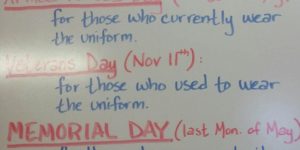 for those who currently wear
the uniform.
Veterans Day (Nov 11th):
for those who used to wear
the uniform.
MEMORIAL DAY (last Mon. of May)